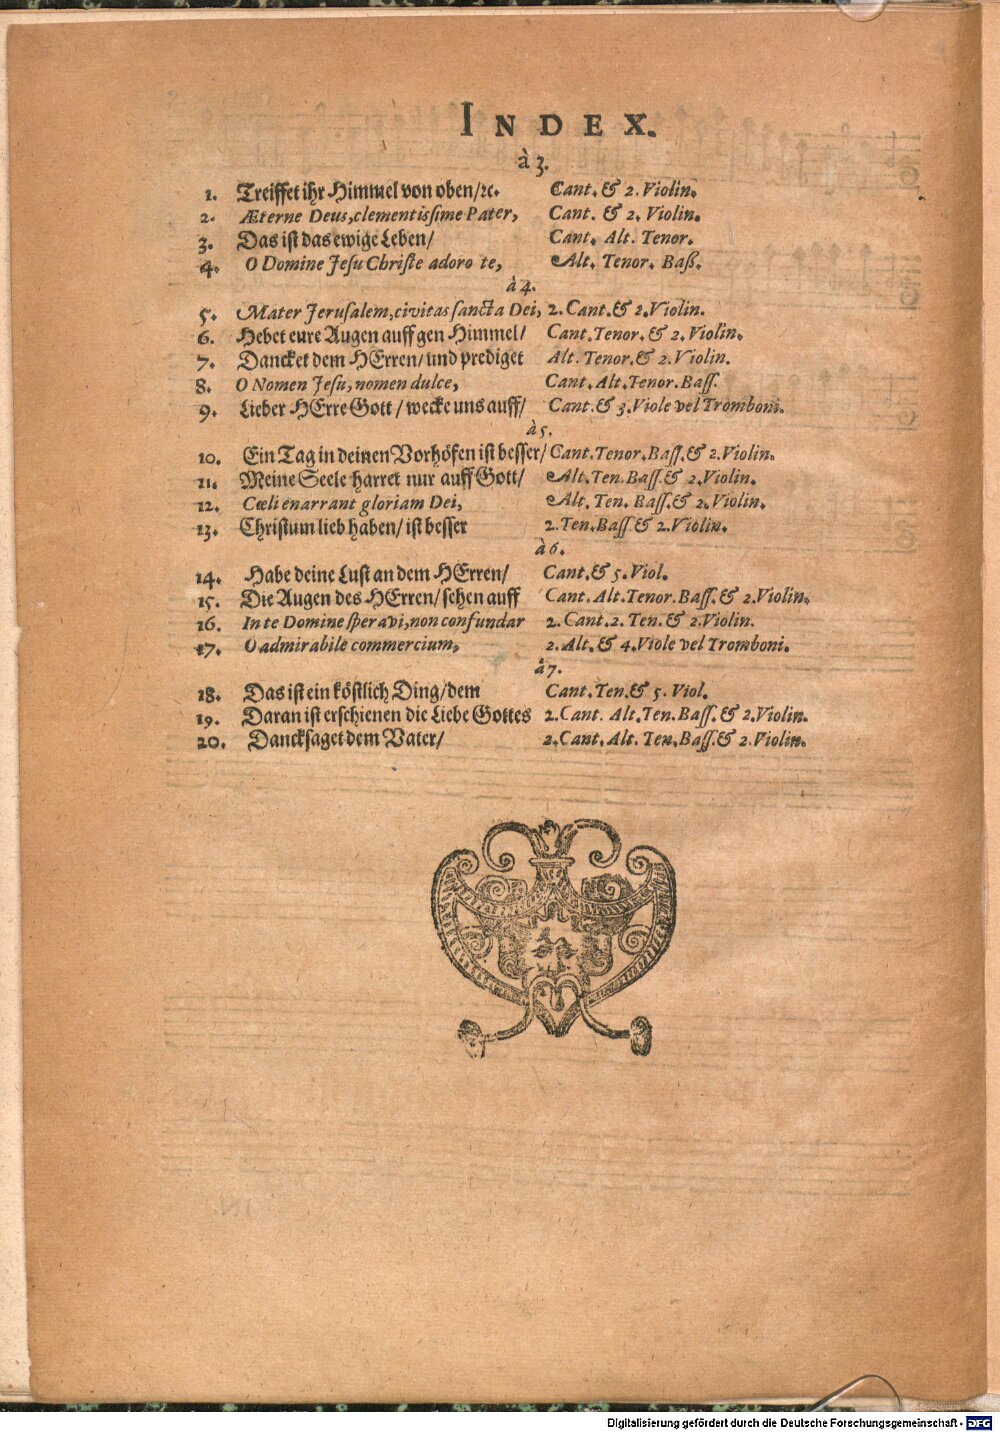 INDEX.
à 3.
1. Treiffet ihr Himmel von oben/ꝛc. Cant. & 2. Violin.
2. Æterne Deus, clementissime Pater, Cant. & 2. Violin.
3. Das ist das ewige Leben/ Cant. Alt. Tenor.
4. O Domine Jesu Christe adoro te, Alt. Tenor. Baß.
à 4.
5. Mater Jerusalem, civitas sancta Dei, 2. Cant. & 2. Violin.
6. Hebet eure Augen auff gen Himmel/ Cant. Tenor. & 2. Violin.
7. Dancket dem HErren/ und prediget Alt. Tenor. & 2. Violin.
8. O Nomen Jesu, nomen dulce, Cant. Alt. Tenor. Bass.
9. Lieber HErre Gott / wecke uns auff/ Cant. & 3. Viole vel Tromboni.
à 5.
10. Ein Tag in deinen Vorhöfen ist besser/ Cant. Tenor. Bass. & 2. Violin.
11. Meine Seele harret nur auff Gott/ Alt. Ten. Bass. & 2. Violin.
12. Cœli enarrant gloriam Dei, Alt. Ten. Bass. & 2. Violin.
13. Christum lieb haben/ ist besser 2. Ten. Bass & 2. Violin.
à 6.
14. Habe deine Lust an dem HErren/ Cant. & 5. Viol.
15. Die Augen des HErren/ sehen auff Cant. Alt. Tenor. Bass. & 2. Violin.
16. In te Domine speravi, non confundar 2. Cant. 2. Ten. & 2. Violin.
17. O admirabile commercium, 2. Alt. & 4. Viole vel Tromboni.
à 7.
18. Das ist ein köstlich Ding/dem Cant. Ten. & 5. Viol.
19. Daran ist erschienen die Liebe Gottes 2. Cant. Alt. Ten. Bass. & 2. Violin.
20. Dancksaget dem Vater/ 2. Cant. Alt. Ten. Bass. & 2. Violin.
Digitalisierung gefördert durch die Deutsche Forschungsgemeinschaft - DFG